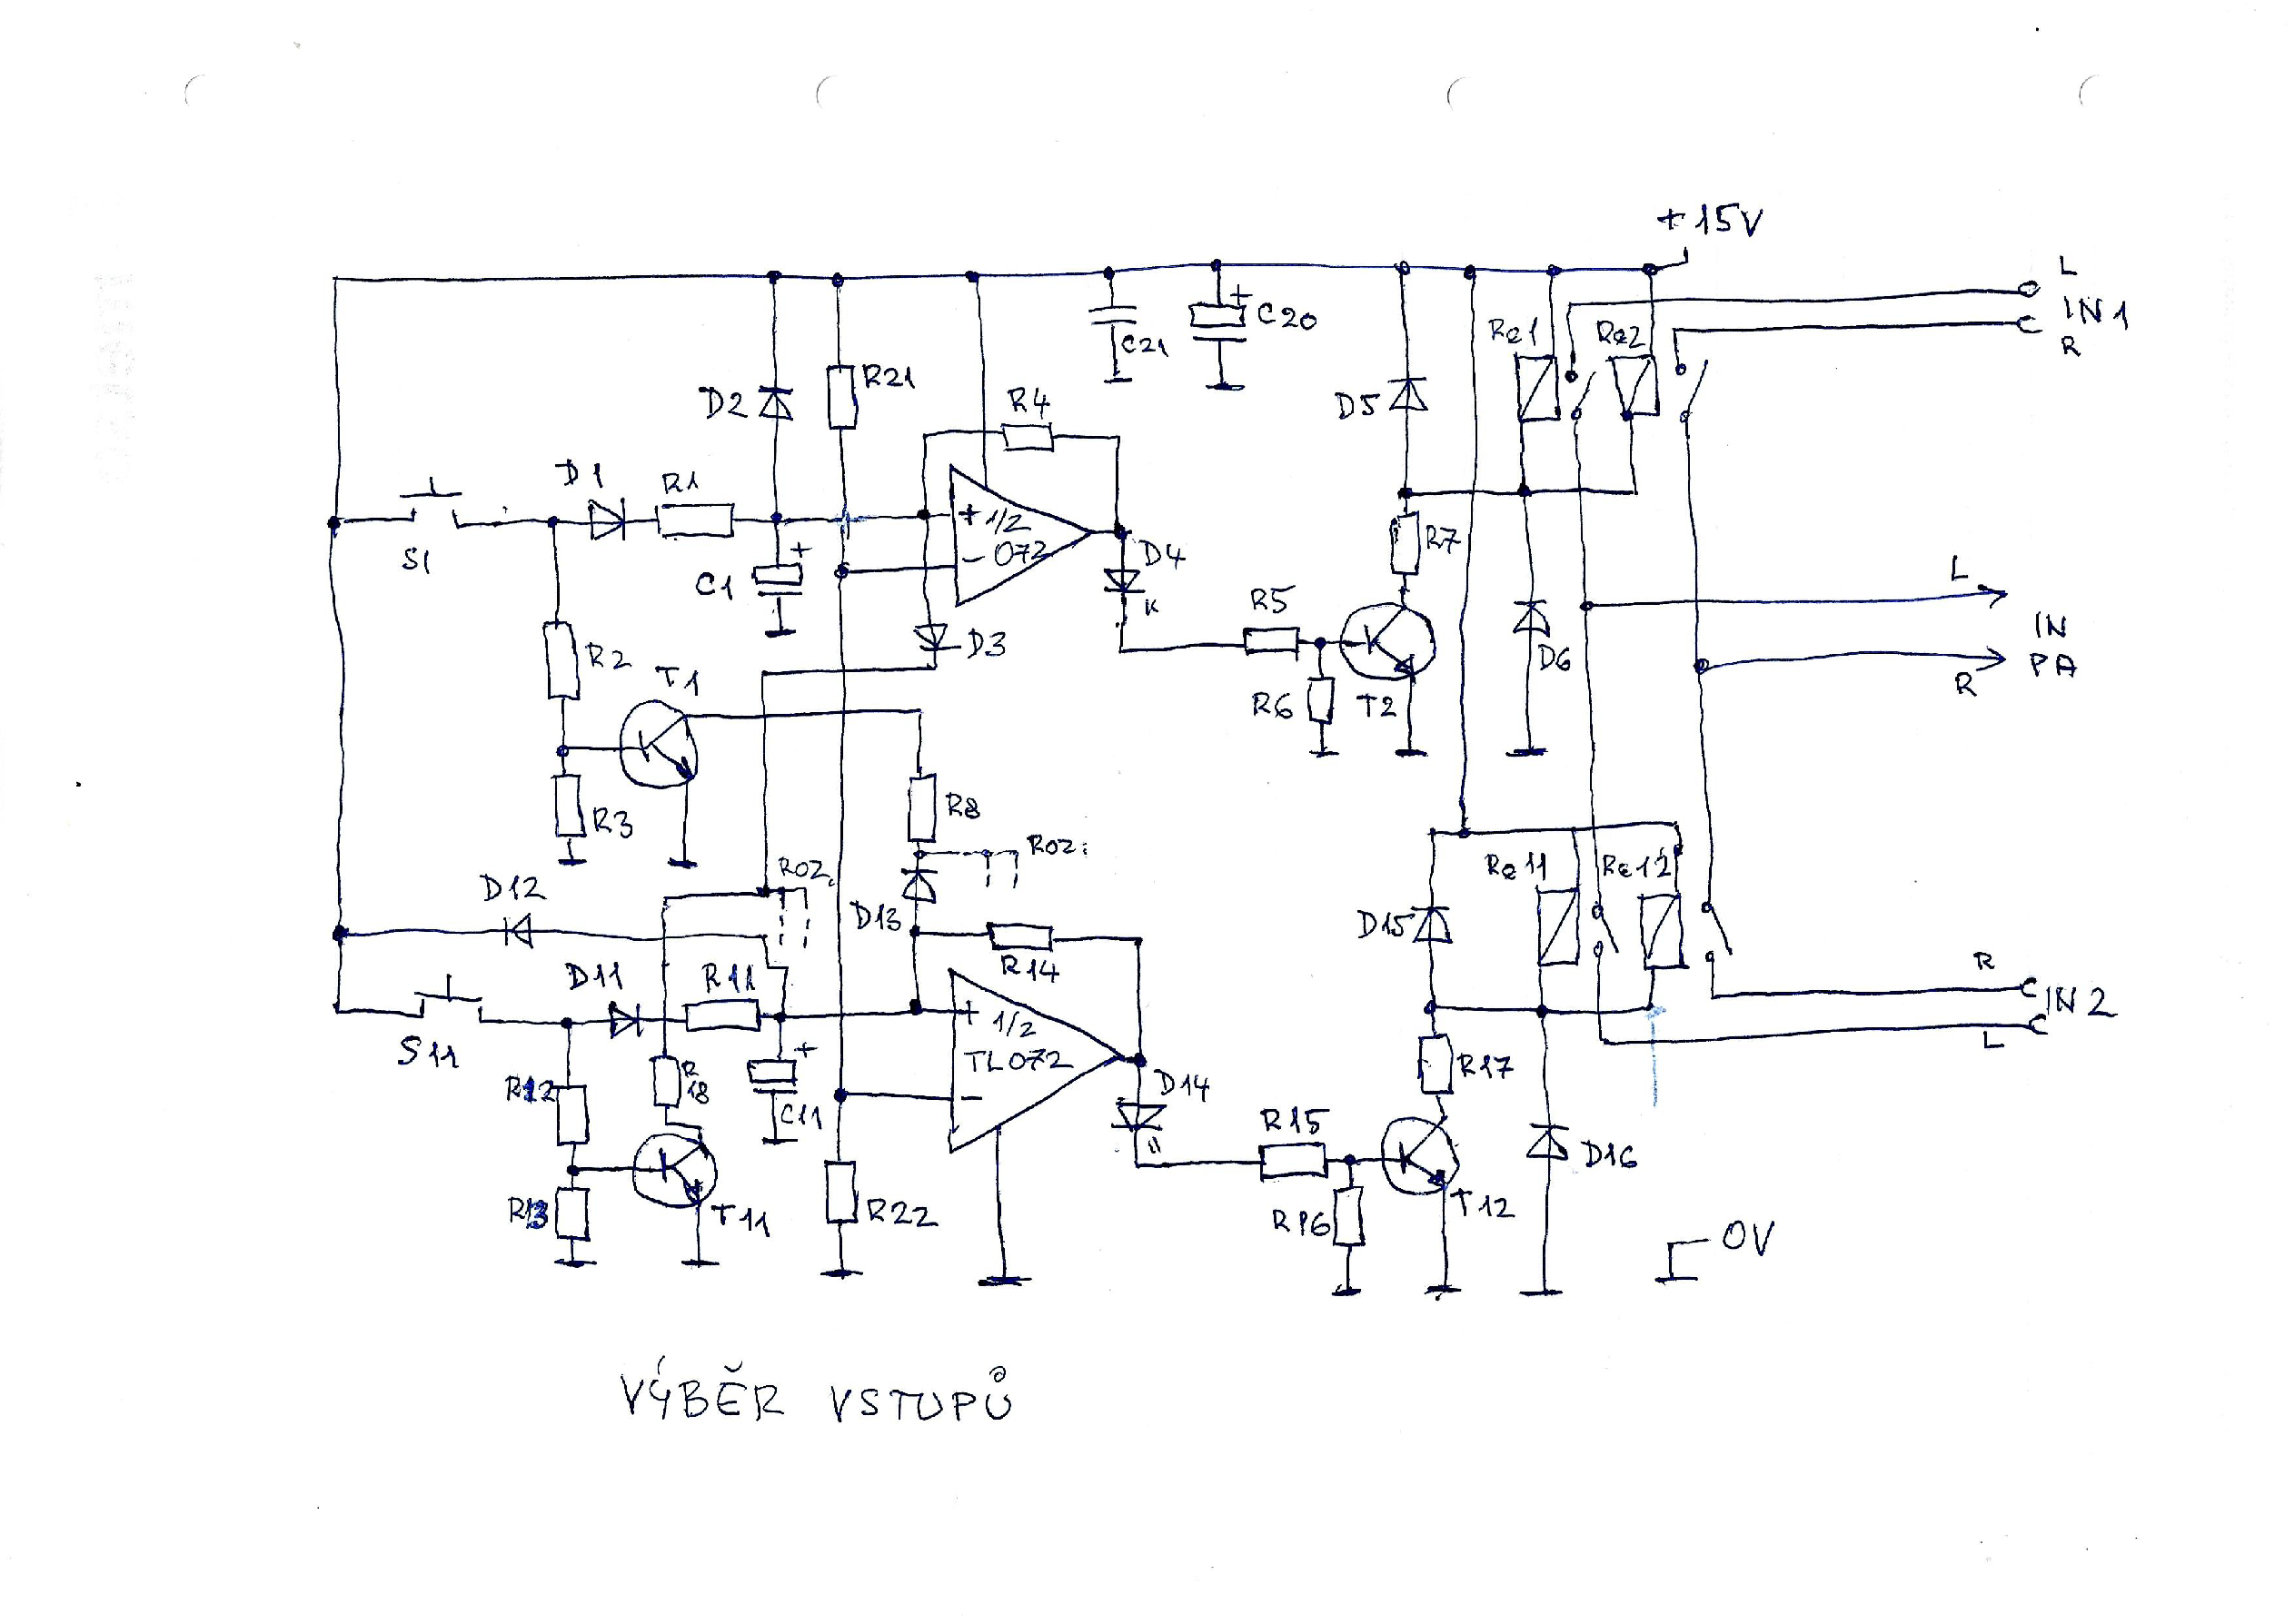 +15V
L
IN1
R
C20
C21
Re1
Re2
R21
D2
R4
D5
D1
R1
+
+
1/2
072
-
S1
C1
+
D4
K
R7
L
IN
PA
R
R5
D3
D6
R2
T1
R6
T2
R3
R8
ROZ.
ROZ.
Re11
Re12
D12
D13
D15
R14
D11
R11
R
IN2
L
S11
+
+
1/2
TL072
-
R
18
C11
R12
D14
"
R17
R15
D16
R13
T11
R22
R16
T12
0V
VÝBĚR VSTUPŮ